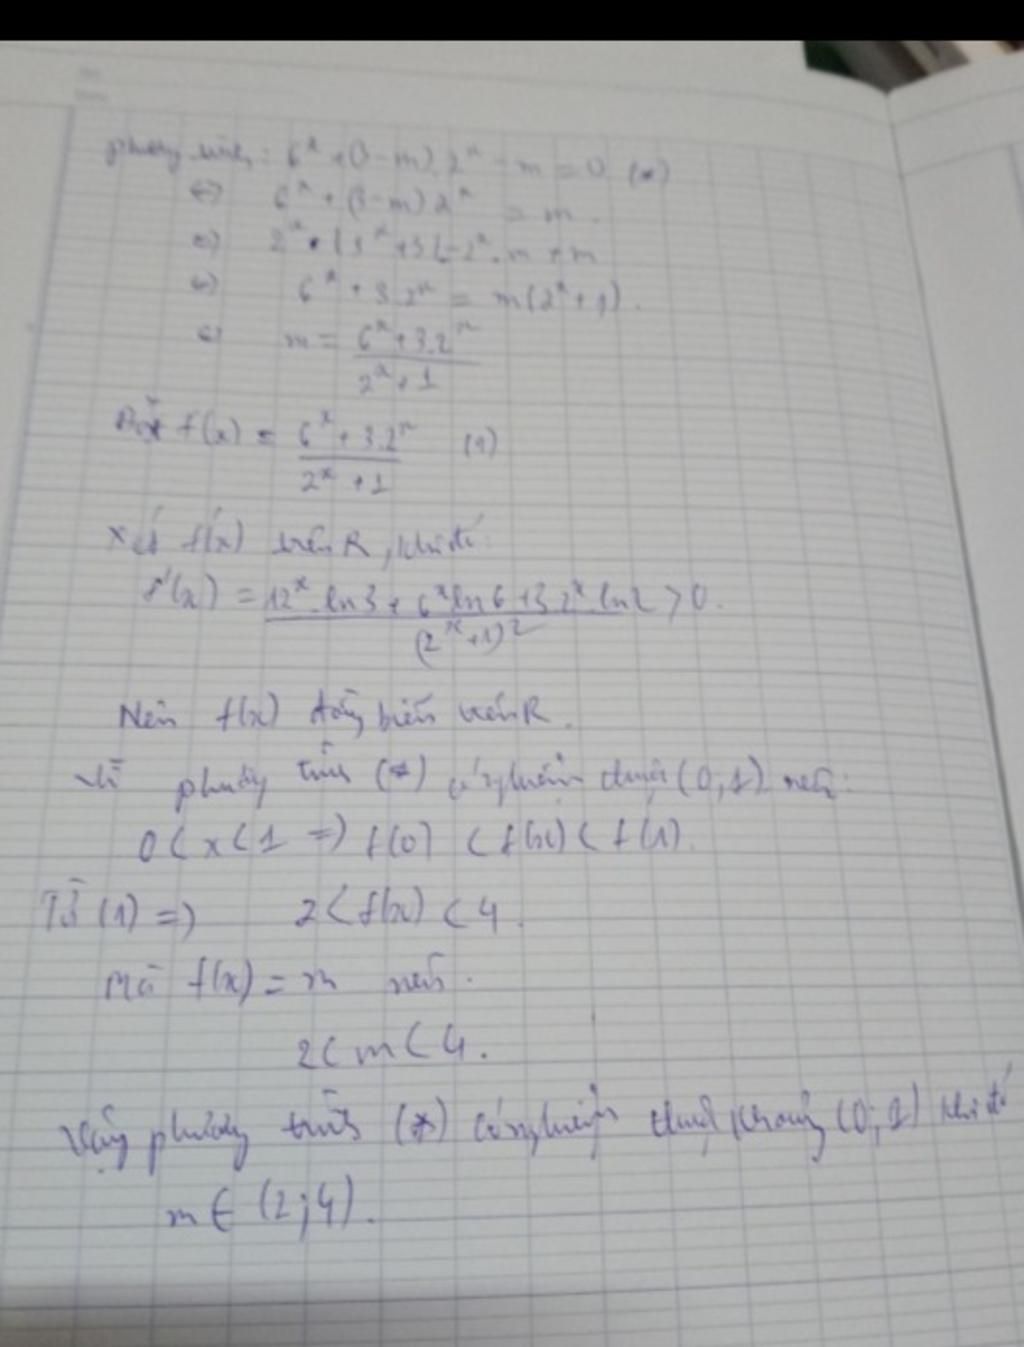 phương trình: 6^x + (3-m).2^x - m = 0 (*)
<=> 6^x + (3-m)2^x = m.
<=> 2^x.(3^x+3)-2^x.m = m
<=> 6^x + 3.2^x = m(2^x+1).
<=> m = \frac{6^x+3.2^x}{2^x+1}
Đặt f(x) = \frac{6^x+3.2^x}{2^x+1} (1)
Xét f(x) trên R, khi đó:
f'(x) = \frac{12^x.ln3 + 6^x ln6 + 3.2^x ln2}{(2^x+1)^2} > 0.
Nên f(x) đồng biến trên R.
Vì phương trình (*) có nghiệm thuộc (0;1) nên:
0 < x < 1 => f(0) < f(x) < f(1).
Từ (1) => 2 < f(x) < 4.
Mà f(x) = m nên.
2 < m < 4.
Vậy phương trình (*) có nghiệm thuộc khoảng (0;1) khi đó
m ∈ (2;4).